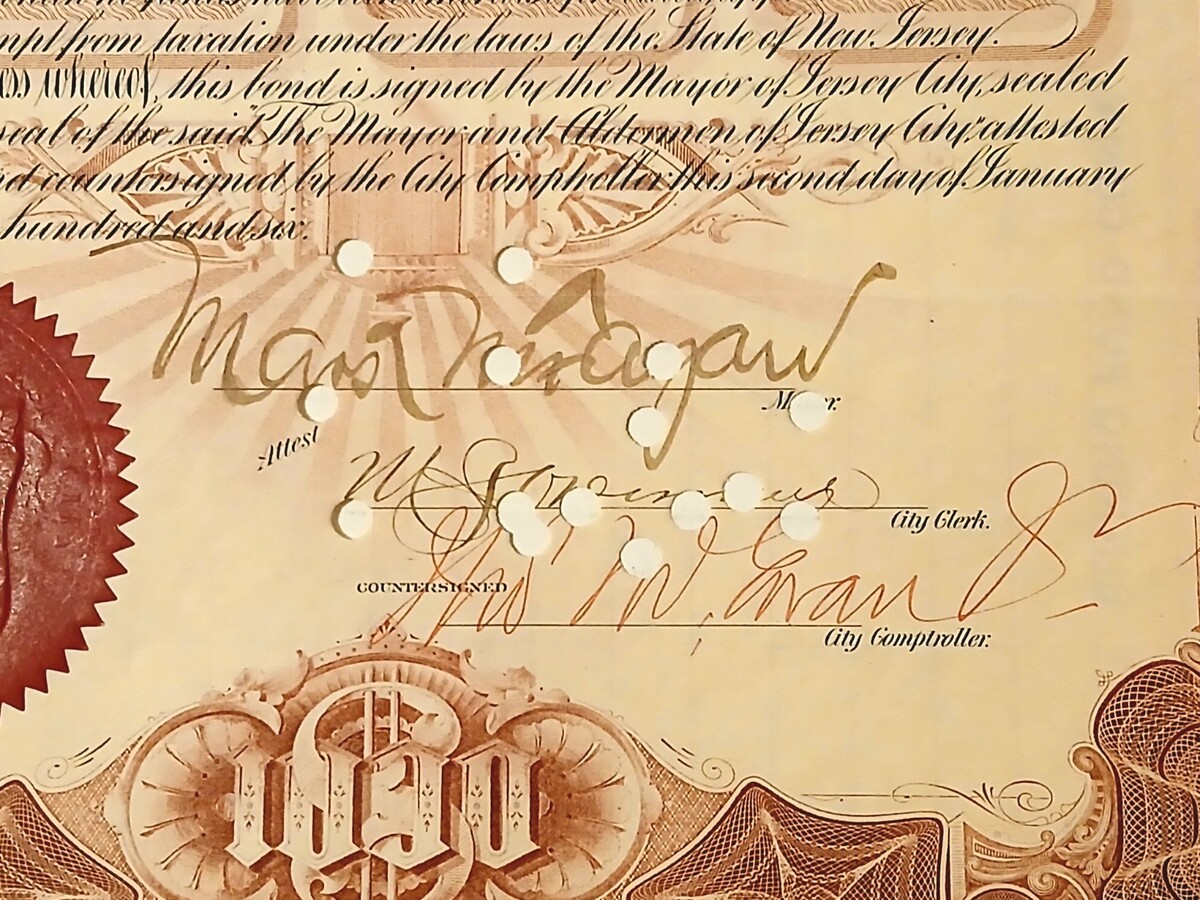 mpt from taxation under the laws of the State of New Jersey.
ess whereof, this bond is signed by the Mayor of Jersey City, sealed
seal of the said "The Mayor and Aldermen of Jersey City," attested
nd countersigned by the City Comptroller this second day of January
hundred and six.
Mark M Fagan
Attest
City Clerk.
COUNTERSIGNED
City Comptroller.